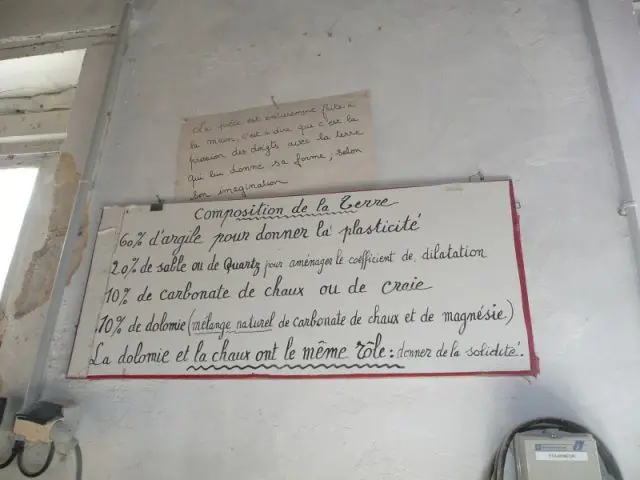 La pièce est entièrement faite à
la main, c'est à dire que c'est la
pression des doigts avec la terre
qui lui donne sa forme, selon
son imagination
Composition de la Terre
60% d'argile pour donner la plasticité
20% de sable ou de Quartz pour aménager le coéfficient de dilatation
10% de carbonate de chaux ou de craie
10% de dolomie (mélange naturel de carbonate de chaux et de magnésie.)
La dolomie et la chaux ont le même rôle : donner de la solidité.